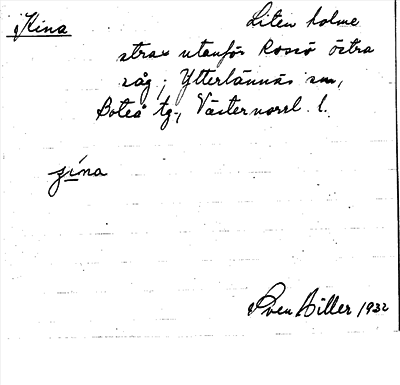 Kina
Liten holme
strax utanför Rossö östra
såg; Ytterlännäs sn,
Boteå tg., Västernorrl. l.
Sven Hiller 1932